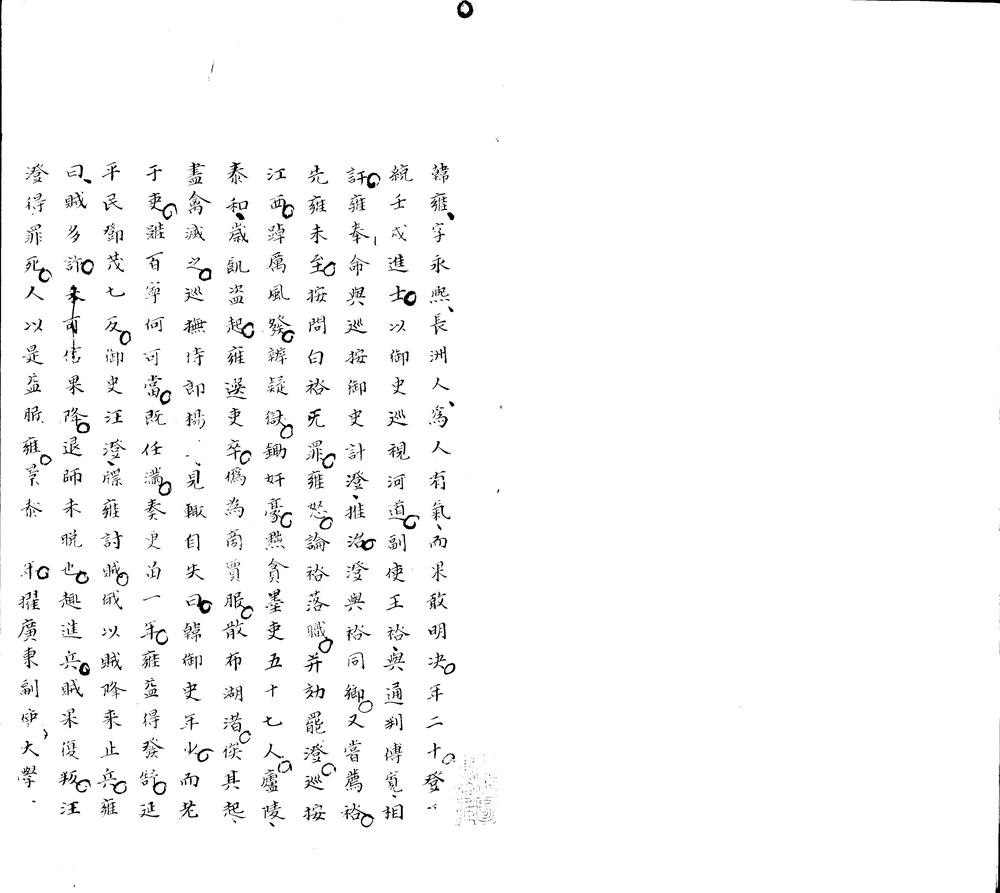 韓雍字永熙長洲人為人有氣而果敢明决年二十登
統壬戌進士以御史巡視河道副使王裕與通判傅寬相
訐雍奉命與巡按御史計澄推治澄與裕同鄉又嘗薦裕
先雍未至按問白裕無罪雍怒論裕落職并劾罷澄巡按
江西踔厲風發辨疑獄鋤奸豪黜貪墨吏五十七人廬陵
泰和歲飢盜起雍選吏卒偽為商賈服散布湖渚俟其起
盡禽滅之巡撫侍郎楊見輒自失曰韓御史年少而老
于吏雖百寧何可當既任滿奏更留一年雍益得發舒延
平民鄧茂七反御史汪澄牒雍討賊俄以賊降來止兵雍
曰賊多詐未可信果降退師未晚也趣進兵賊果復叛汪
澄得罪死人以是益服雍景泰 年擢廣東副使大學